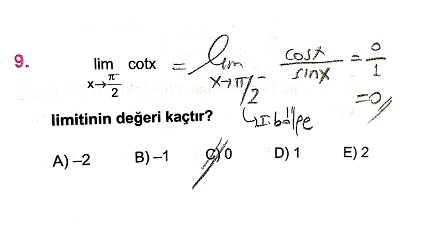 9.
lim x→π/2⁻ cotx = lim x→π/2⁻ cosx/sinx = 0/1
=0
↳I.bölge
limitinin değeri kaçtır?
A) –2 B) –1 C) 0 D) 1 E) 2